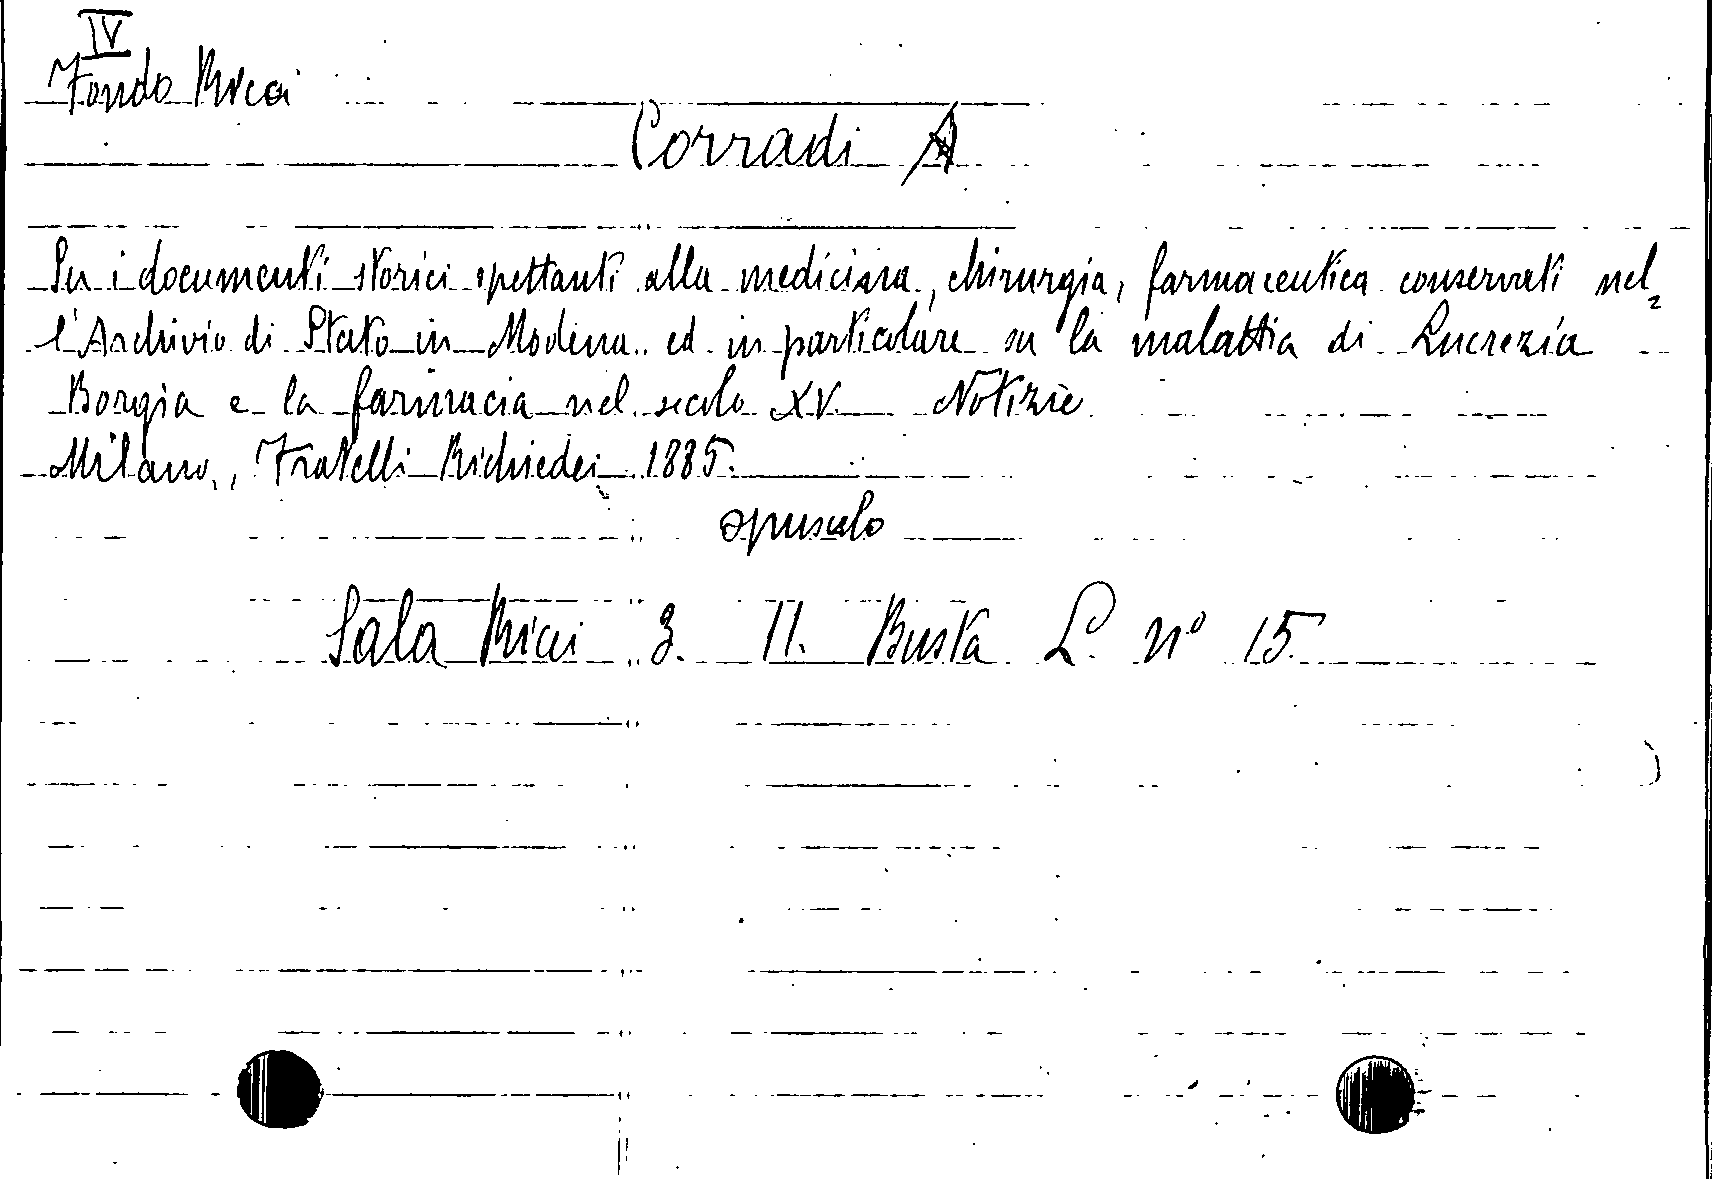 IV
Fondo Ricci
Corradi A
Su i documenti storici spettanti alla medicina, chirurgia, farmaceutica conservati nel=
l'Archivio di Stato in Modena ed in particolare su la malattia di Lucrezia
Borgia e la farmacia nel secolo XV. Notizie
Milano, Fratelli Richiedei 1885.
opuscolo
Sala Ricci 3. II. Busta L. nº 15